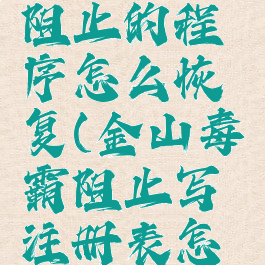 阻止的程
序怎么恢
复(金山毒
霸阻止写
注册表怎